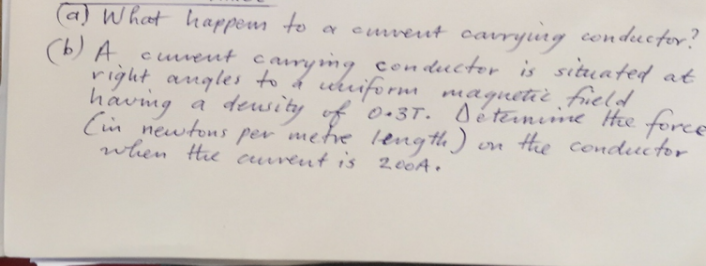 (a) What happens to a current carrying conductor?
(b) A current carrying conductor is situated at
right angles to a uniform magnetic field
having a density of 0.3T. Determine the force
(in newtons per metre length) on the conductor
when the current is 200A.